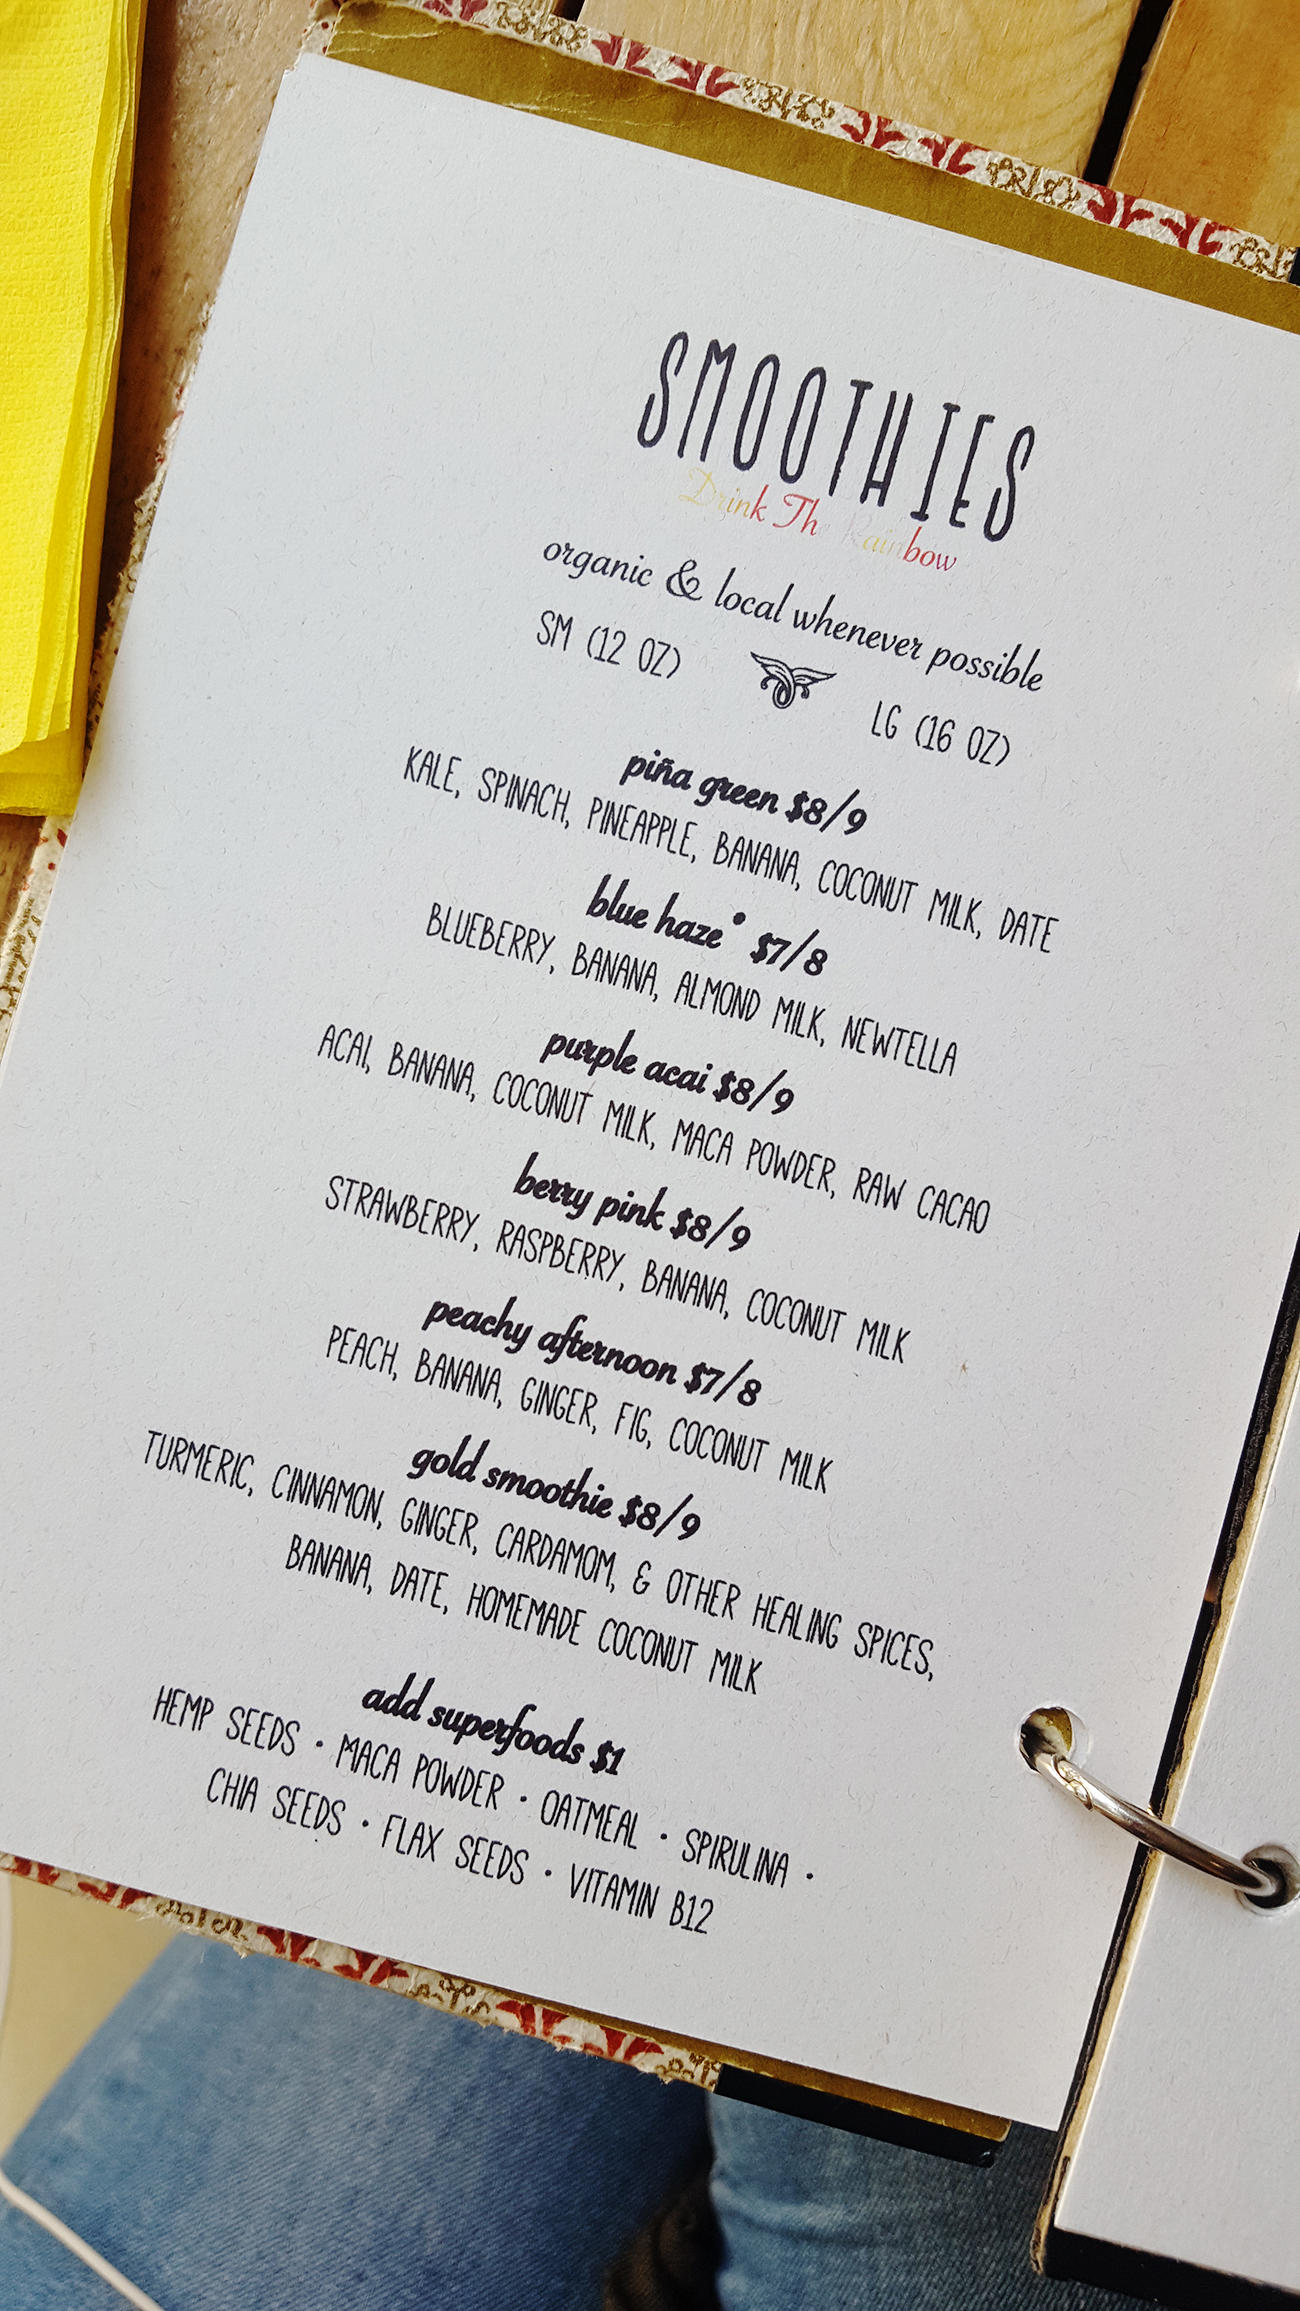 SMOOTHIES
Drink The Rainbow
organic & local whenever possible
SM (12 OZ) LG (16 OZ)
piña green $8/9
KALE, SPINACH, PINEAPPLE, BANANA, COCONUT MILK, DATE
blue haze• $7/8
BLUEBERRY, BANANA, ALMOND MILK, NEWTELLA
purple acai $8/9
ACAI, BANANA, COCONUT MILK, MACA POWDER, RAW CACAO
berry pink $8/9
STRAWBERRY, RASPBERRY, BANANA, COCONUT MILK
peachy afternoon $7/8
PEACH, BANANA, GINGER, FIG, COCONUT MILK
gold smoothie $8/9
TURMERIC, CINNAMON, GINGER, CARDAMOM, & OTHER HEALING SPICES,
BANANA, DATE, HOMEMADE COCONUT MILK
add superfoods $1
HEMP SEEDS • MACA POWDER • OATMEAL • SPIRULINA •
CHIA SEEDS • FLAX SEEDS • VITAMIN B12